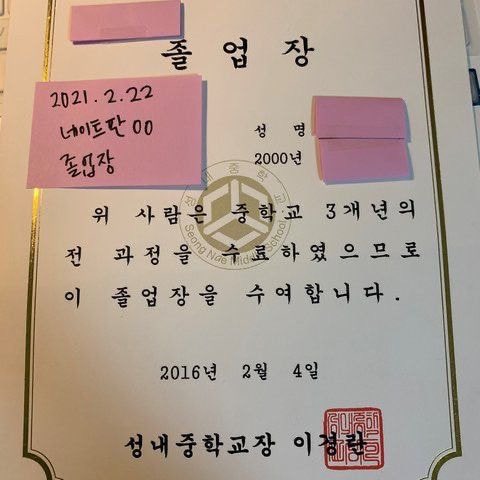 졸업장
2021.2.22
네이트판 00
졸업장
성 명
2000년
위 사람은 중학교 3개년의
전 과정을 수료하였으므로
이 졸업장을 수여합니다.
성내중학교
Seong Nae Middle School
2016년 2월 4일
성내중학교장 이경란